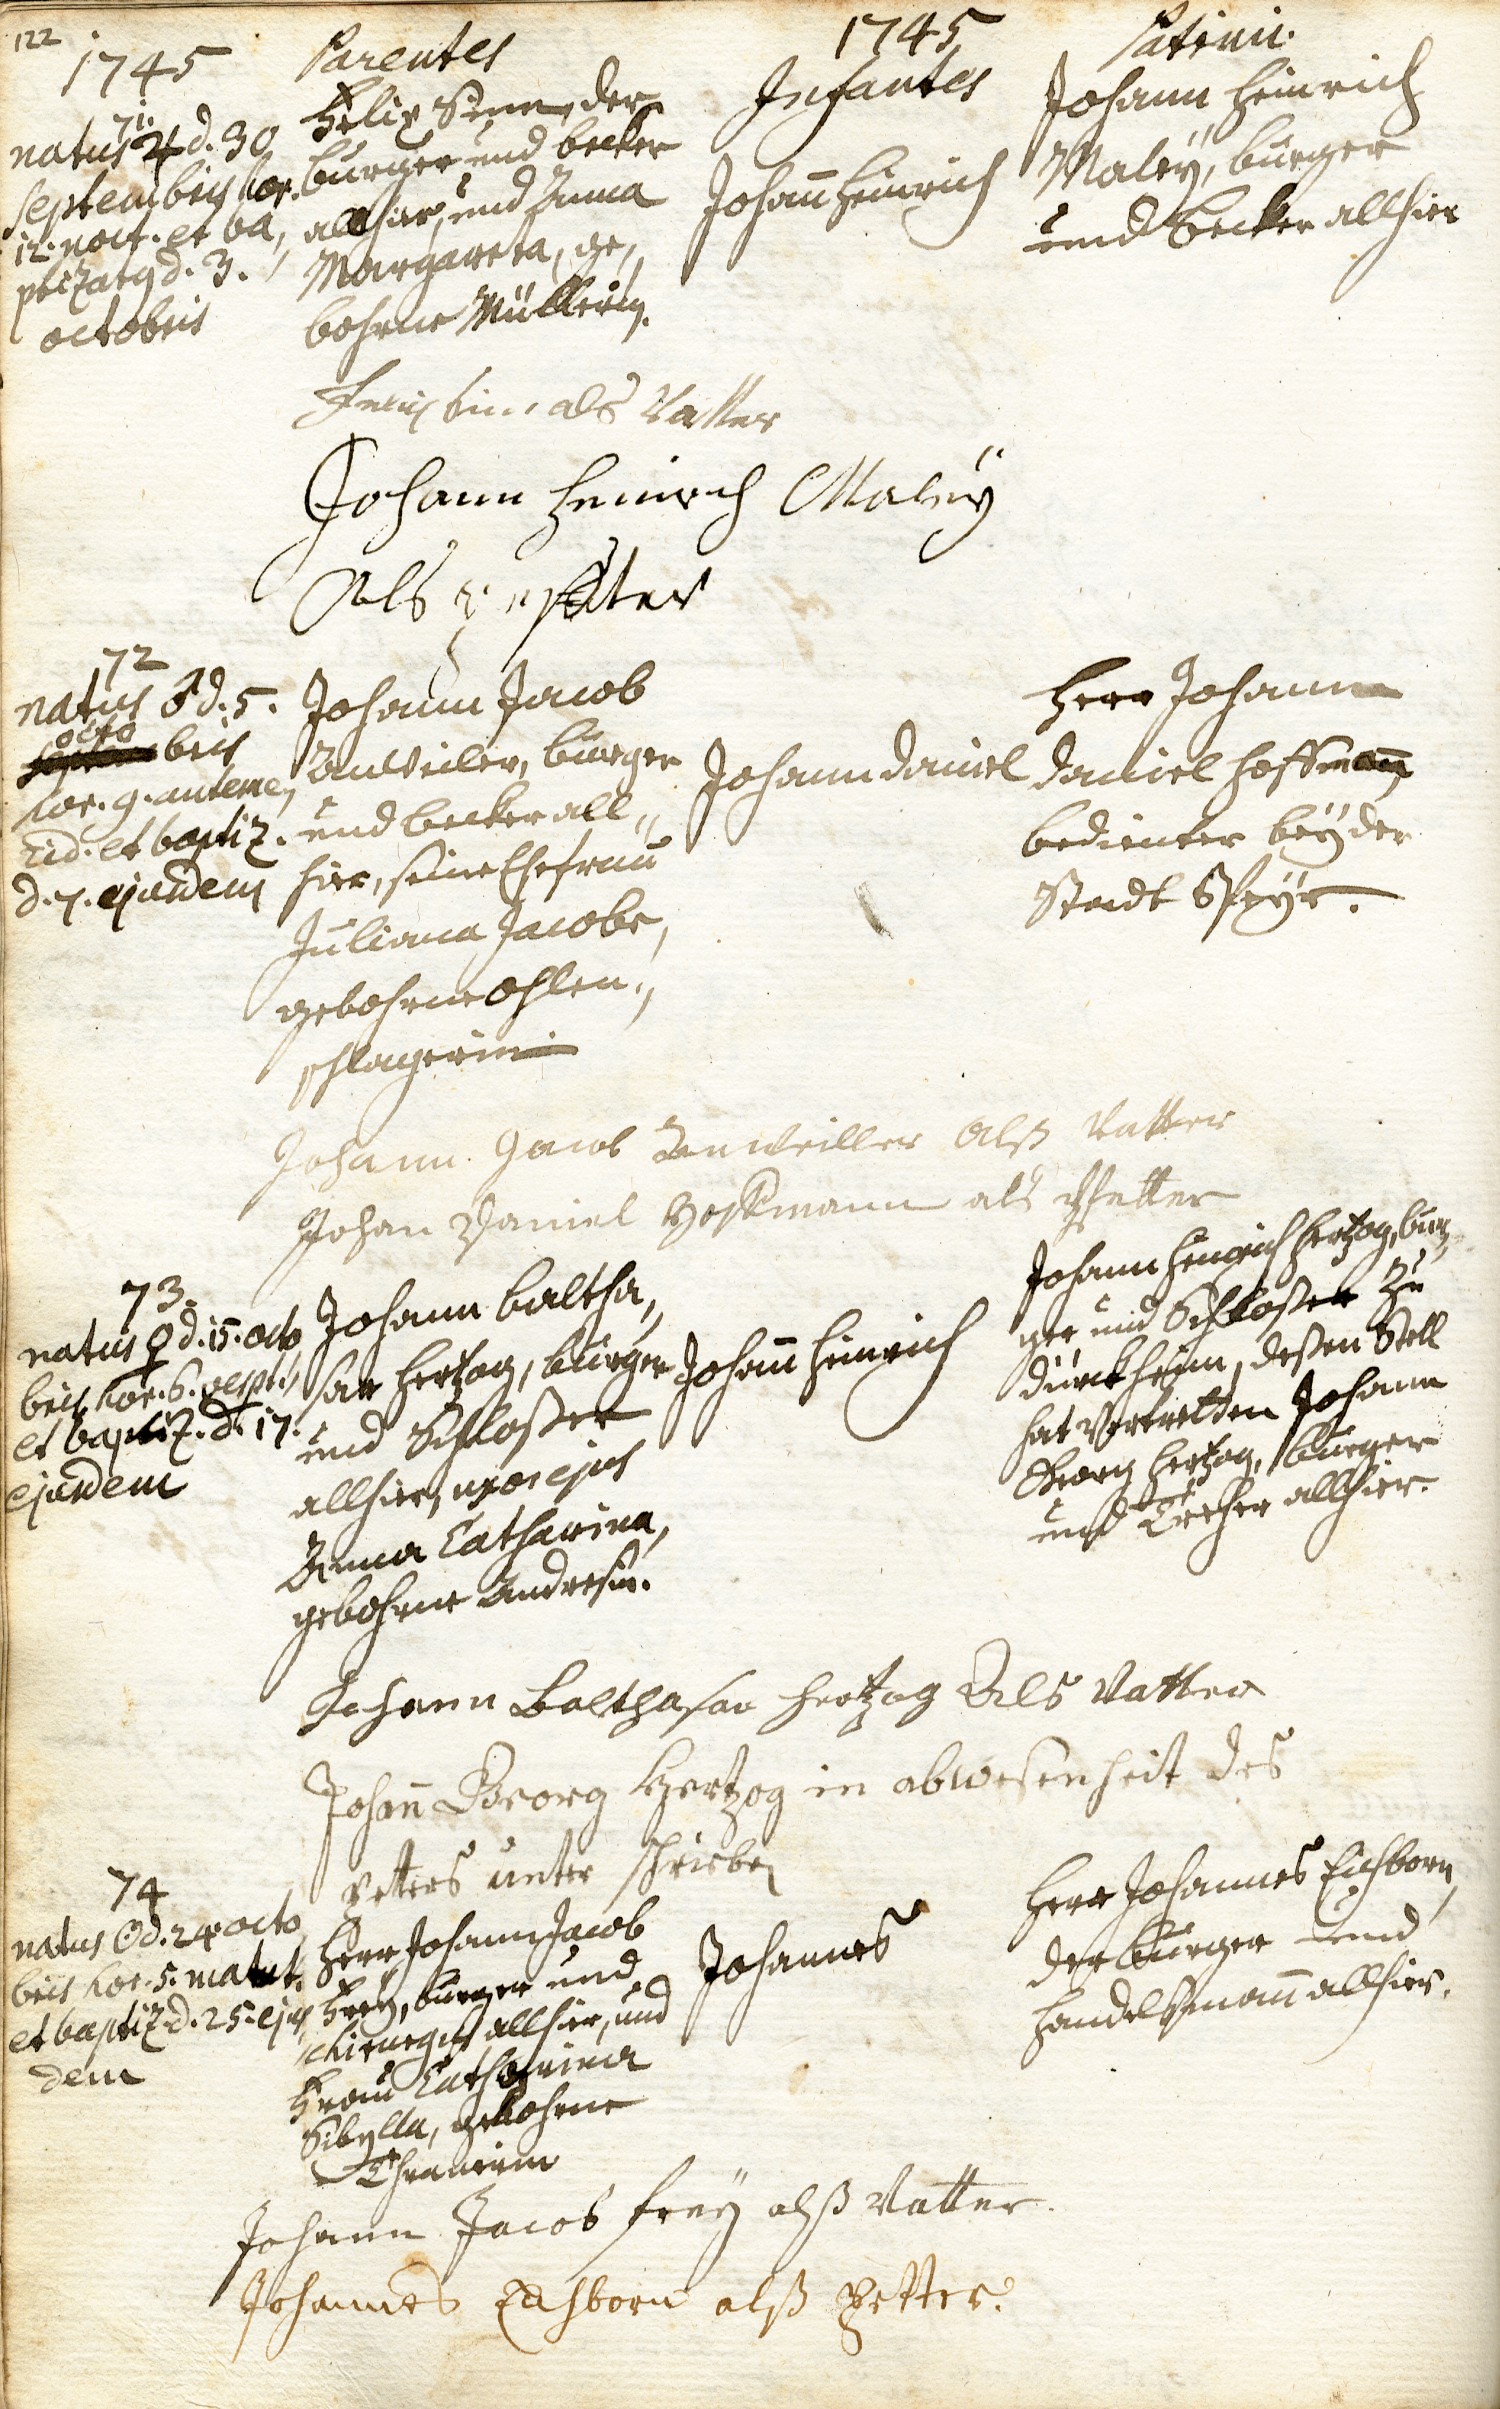 122
1745
Parentes
1745
Infantes
Patrini.
71.
natus ♃ d. 30
Septembris hor.
12. noct. et ba,
ptizatq d. 3.
octobris
Felix Sinn, der
burger und becker
allhier, und Anna
Margareta, ge,
bohrne Müllerin.
Johañ Heinrich
Johann Heinrich
Maleÿ, burger
und becker allhier
Felix Sinn als Vatter
Johann Heinrich Maleÿ
Als petter
72
natus ♂ d. 5.
octo
bris
hor. 9. anteme,
rid. et baptiz.
d. 7. ejusdem
Johann Jacob
Anweiler, burger
und becker all,,
hier, seine Ehefrau
Juliana Jacobe,
gebohrne Ohlen,,
schlagerin
Johann daniel
Herr Johann
daniel Hoffmañ
bedienter beÿ der
Stadt Speÿr.
Johann Jacob Anweiller Alß Vatter
Johan Daniel Hoffmann als Petter
73.
natus ☿ d. 15. octo
bris hor. 6. vesp.
et baptiz. d. 17.
ejusdem
Johann baltha,,
sar Hertzog, burger
und Schloßer
allhier, uxor ejus
Anna Catharina,
gebohrne Andresin.
Johañ Heinrich
Johann Heinrich Hertzog, bur,
ger und Schloßer zu
dürckheim, deßen Stell
hat vertretten Johann
Georg Hertzog, burger
und Dreher allhier.
Johann Balthasar Hertzog Als Vatter
Johañ Georg Hertzog in abwesenheit des
petters unter schrieben
74
natus ☉ d. 24 octo
bris hor. 5. matut.
et baptiz. d. 25. ejus
dem
Herr Johann Jacob
Freÿ, burger und
chirurgus allhier, und
Frau Catharina
Sibylla, gebohrne
Johannes
Herr Johannes Eichborn,
der burger und
Handelsmañ allhier.
Johann Jacob freÿ alß Vatter.
Johannes Eichborn alß Petter.